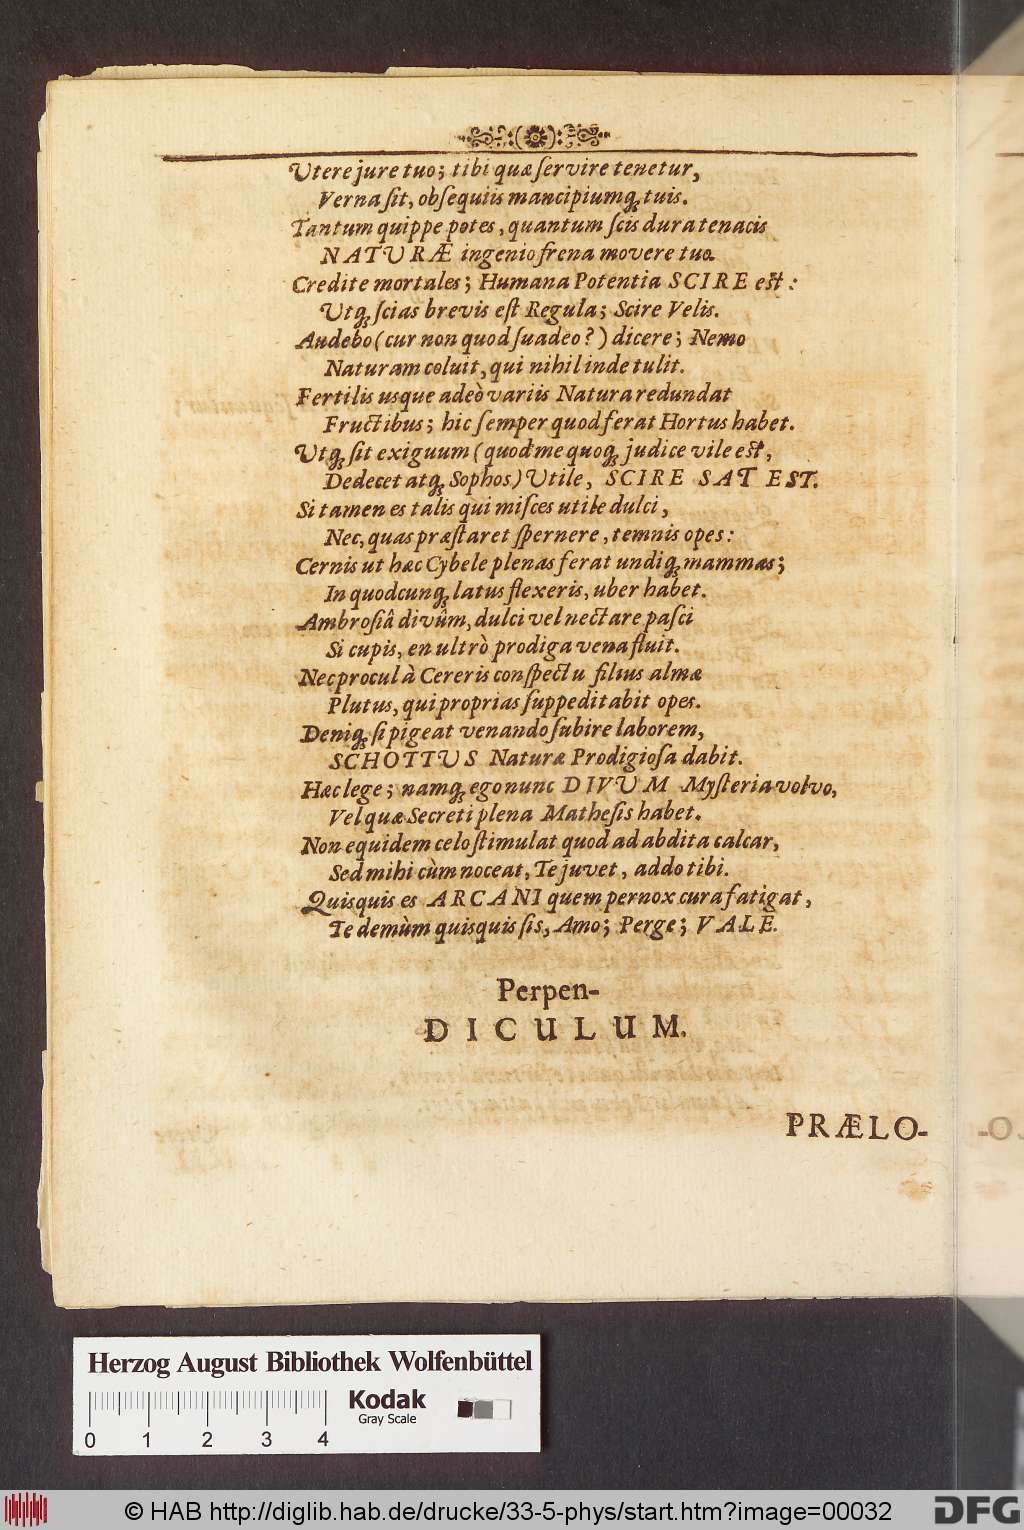 Utere jure tuo; tibi quæ ſervire tenetur,
Verna ſit, obſequiis mancipiumq́ꝫ tuis.
Tantum quippe potes, quantum ſcis dura tenacis
NATURÆ ingenio frena movere tuo.
Credite mortales; Humana Potentia SCIRE eſt:
Utq́ꝫ ſcias brevis eſt Regula; Scire Velis.
Audebo (cur non quod ſuadeo?) dicere; Nemo
Naturam coluit, qui nihil inde tulit.
Fertilis usque adeò variis Natura redundat
Fructibus; hic ſemper quod ferat Hortus habet.
Utq́ꝫ ſit exiguum (quod me quoq́ꝫ judice vile eſt,
Dedecet atq́ꝫ Sophos) Utile, SCIRE SAT EST.
Si tamen es talis qui miſces utile dulci,
Nec, quas præſtaret ſpernere, temnis opes:
Cernis ut hæc Cybele plenas ferat undiq́ꝫ mammas;
In quodcunq́ꝫ latus flexeris, uber habet.
Ambroſiâ divûm, dulci vel nectare paſci
Si cupis, en ultrò prodiga vena fluit.
Nec procul à Cereris conſpectu filius almæ
Plutus, qui proprias ſuppeditabit opes.
Deniq́ꝫ ſi pigeat venando ſubire laborem,
SCHOTTUS Naturæ Prodigioſa dabit.
Hæc lege; namq́ꝫ ego nunc DIVUM Myſteria volvo,
Vel quæ Secreti plena Matheſis habet.
Non equidem celo ſtimulat quod ad abdita calcar,
Sed mihi cùm noceat, Te juvet, addo tibi.
Quisquis es ARCANI quem pernox cura fatigat,
Te demùm quisquis ſis, Amo; Perge; VALE.
Perpen-
DICULUM.
PRÆLO-
Herzog August Bibliothek Wolfenbüttel
Kodak
Gray Scale
0 1 2 3 4
© HAB http://diglib.hab.de/drucke/33-5-phys/start.htm?image=00032
DFG